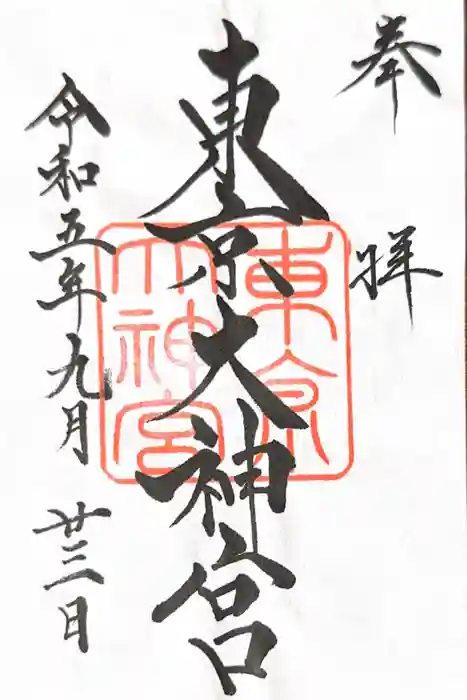 奉拝
東京大神宮
東京大神宮
令和五年九月廿三日